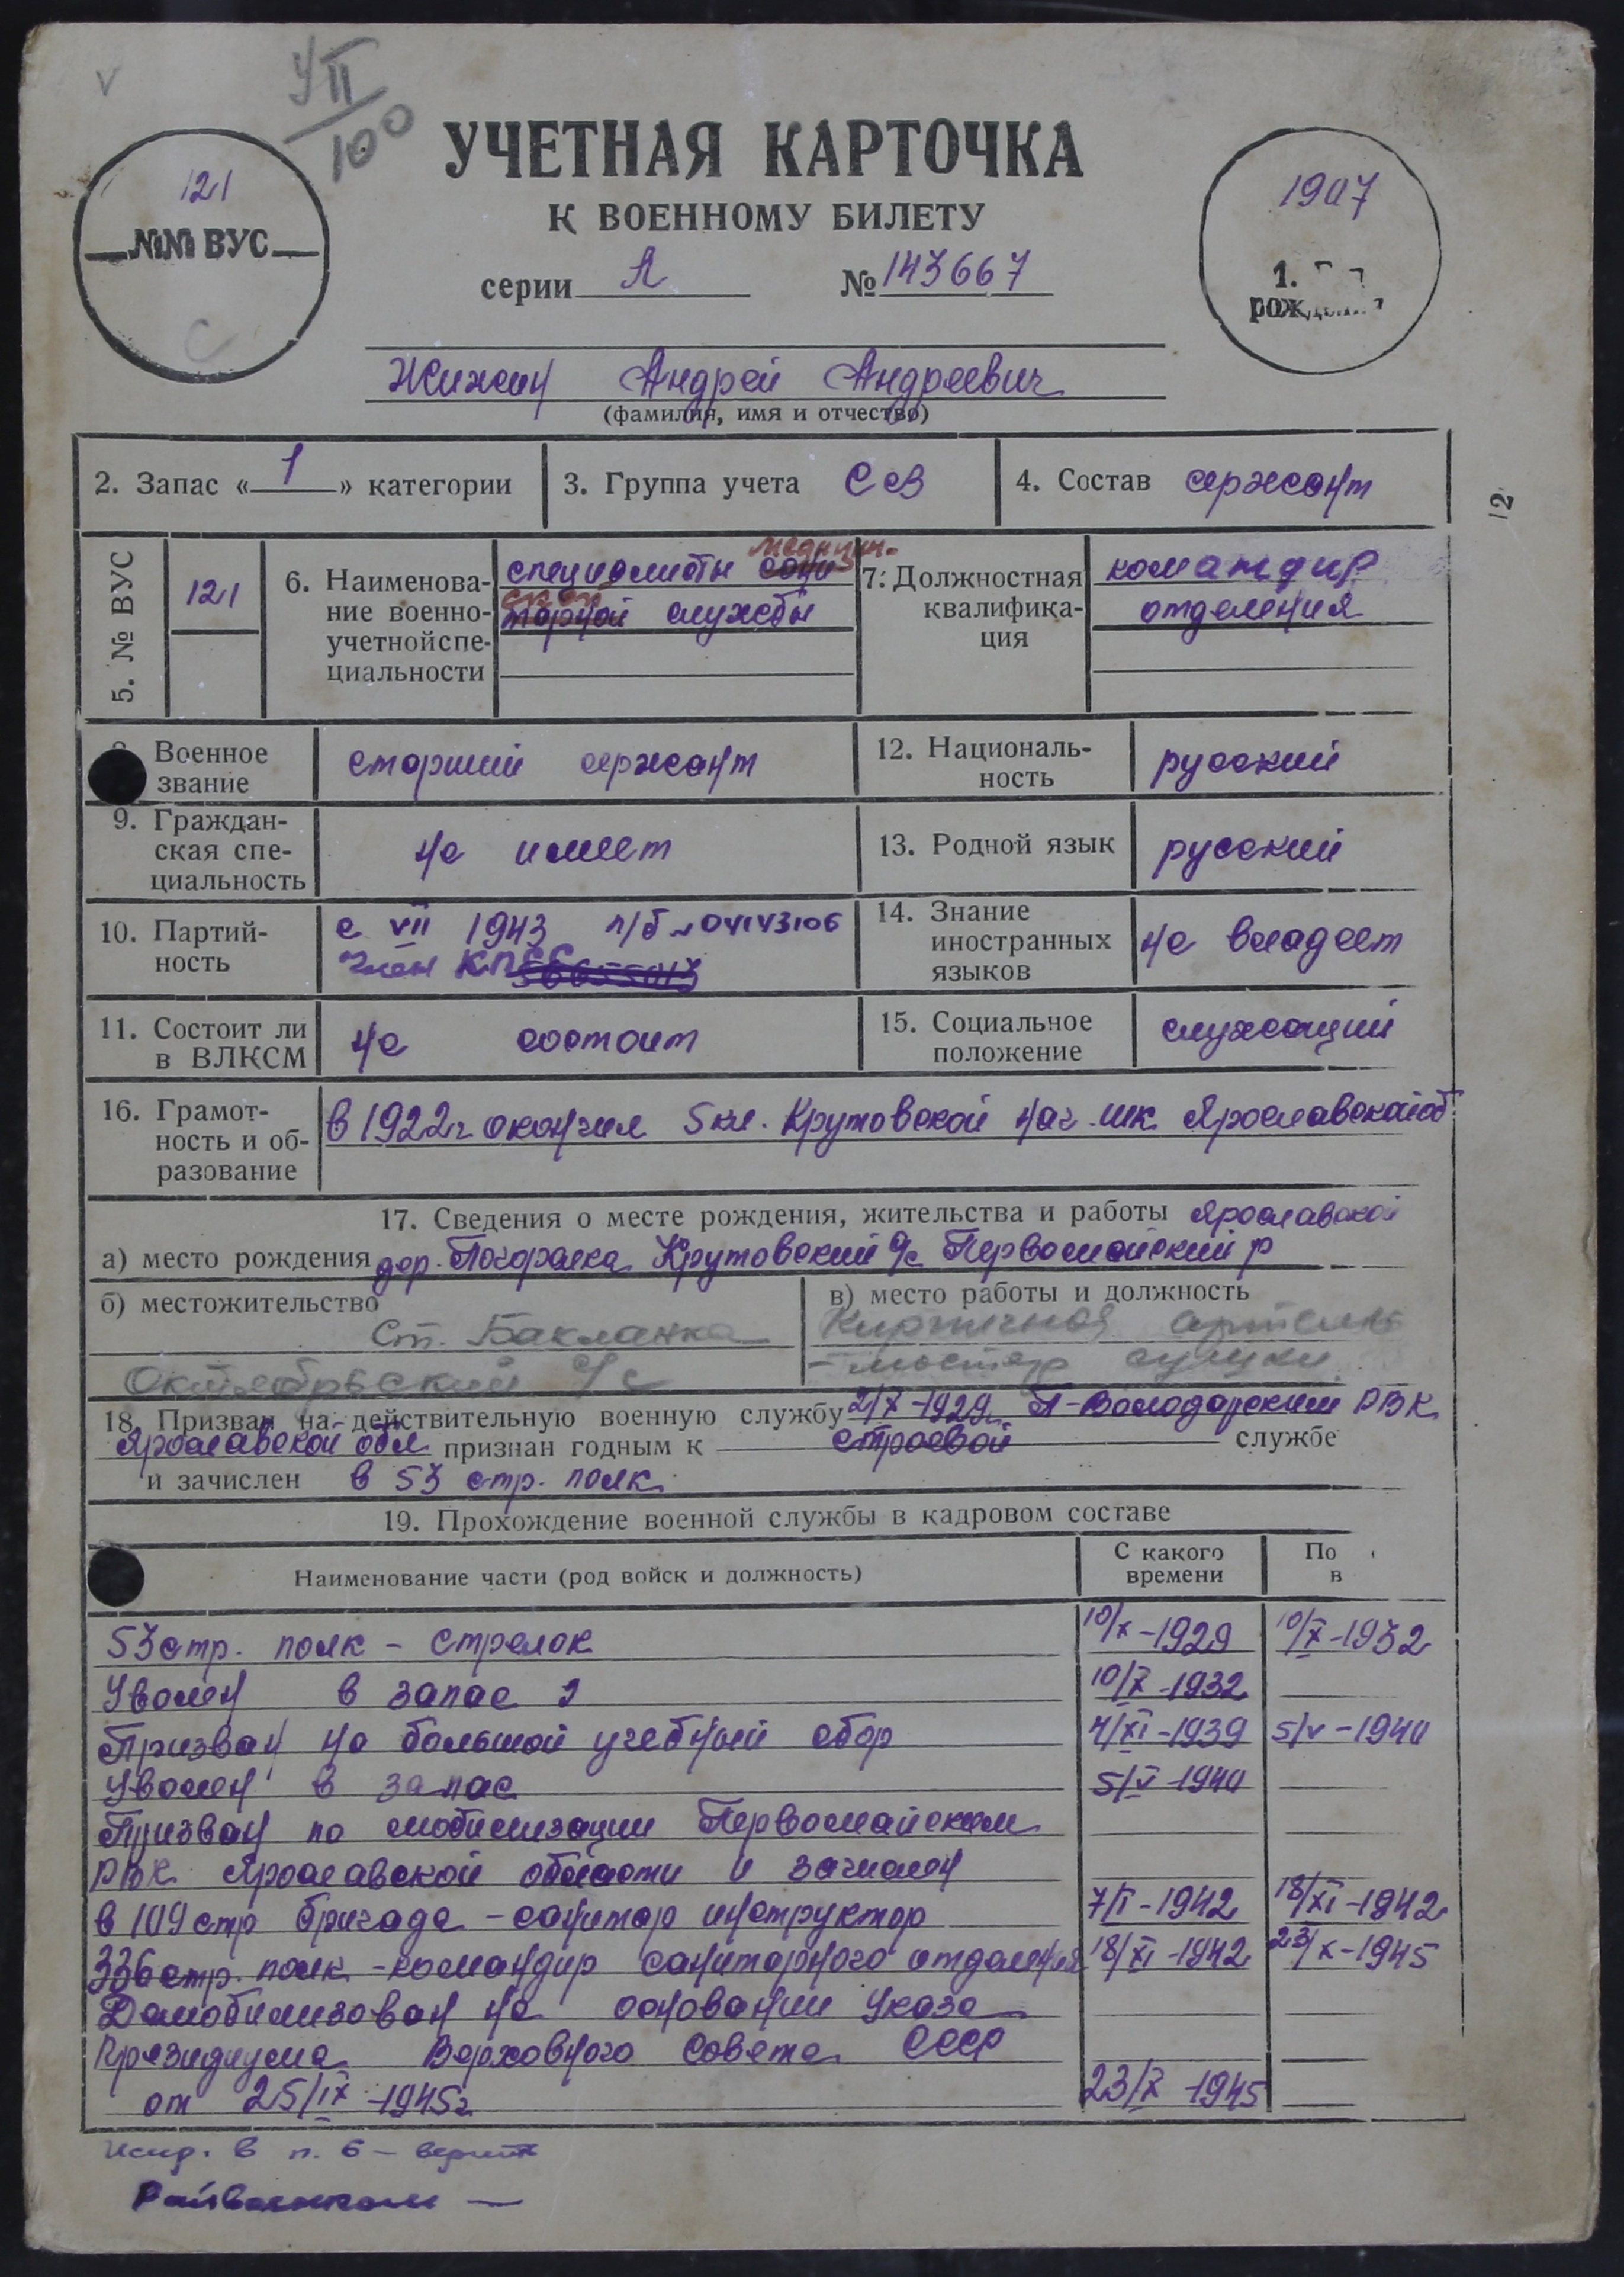 V
УII
100
121
№№ ВУС
С
УЧЕТНАЯ КАРТОЧКА
К ВОЕННОМУ БИЛЕТУ
серии А № 143667
1907
1.
рожд
Жижин Андрей Андреевич
(фамилия, имя и отчество)
2. Запас « 1 » категории
3. Группа учета ССВ
4. Состав сержант
12
5. № ВУС
121
6. Наименова-
ние военно-
учетной спе-
циальности
медицин.
специалисты сани
ской
тарной службы
7. Должностная
квалифика-
ция
командир
отделения
Военное
звание
старший сержант
12. Националь-
ность
русский
9. Граждан-
ская спе-
циальность
не имеет
13. Родной язык
русский
10. Партий-
ность
с VII 1943 п/б № 04143106
Член КПСС
14. Знание
иностранных
языков
не владеет
11. Состоит ли
в ВЛКСМ
не состоит
15. Социальное
положение
служащий
16. Грамот-
ность и об-
разование
в 1922 г окончил 5 кл. Крутовской нач. шк. Ярославской об.
17. Сведения о месте рождения, жительства и работы Ярославской
а) место рождения дер. Погорелка Крутовский с/с Первомайский р
б) местожительство
ст. Бакланка
Октябрьский с/с
в) место работы и должность
Кирпичная артель
- мастер сушки
18. Призван на действительную военную службу 2/X-1929 П-Володарским РВК
Ярославской обл признан годным к строевой службе
и зачислен в 53 стр. полк
19. Прохождение военной службы в кадровом составе
Наименование части (род войск и должность)
С какого
времени
По
в
53 стр. полк - стрелок 10/X-1929 10/X-1932
Уволен в запас 10/X-1932
Призван на большой учебный сбор 4/XI-1939 5/V-1940
Уволен в запас 5/V-1940
Призван по мобилизации Первомайским
РВК Ярославской области и зачислен
в 109 стр бригада - санитар инструктор 7/I-1942 18/XI-1942
336 стр. полк - командир санитарного отделения 18/XI-1942 23/X-1945
Демобилизован на основании Указа
Президиума Верховного Совета СССР
от 25/IX-1945г 23/X-1945
Испр. в п. 6 - верить
Райвоенком